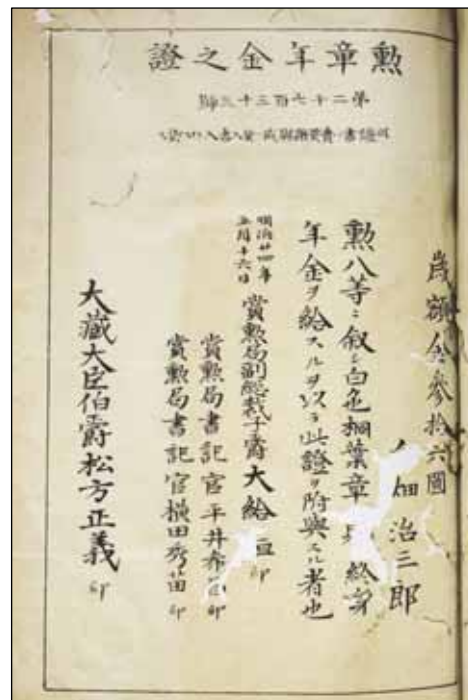 勲章年金之證
第二千七百三十三號
歳額金參拾六圓
畑治三郎
勲八等ニ叙シ白色桐葉章 終身
年金ヲ給スルヲ以テ此證ヲ附與スル者也
明治廿四年
五月十六日
賞勲局副總裁子爵大給恒 印
賞勲局書記官平井希昌 印
賞勲局書記官横田香苗 印
大藏大臣伯爵松方正義 印